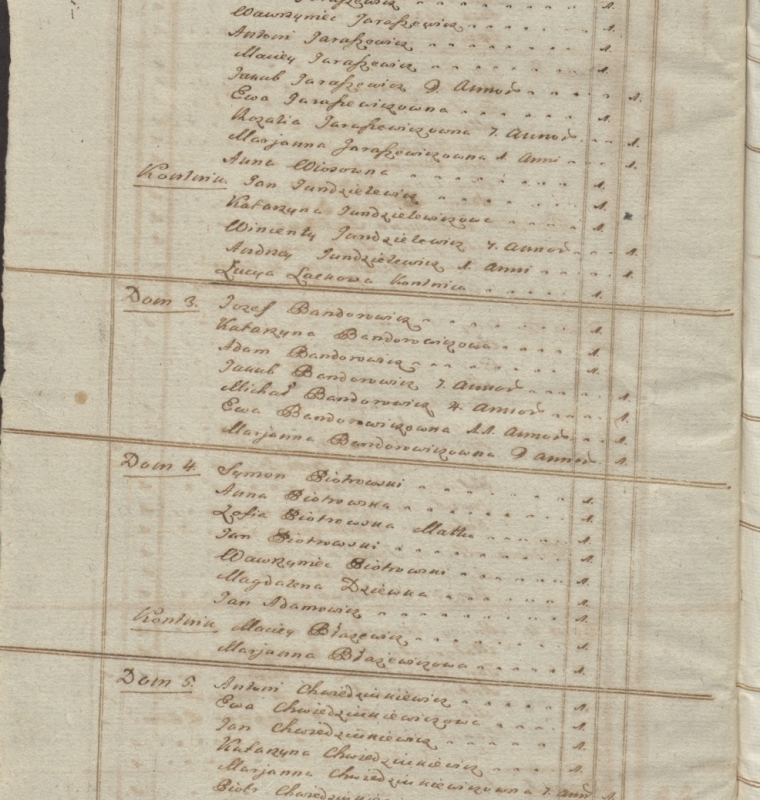 Wawrzyniec Jaraszewicz 1.
Antoni Jaraszewicz 1.
Maciey Jaraszewicz 1.
Jakub Jaraszewicz 9. Annor 1.
Ewa Jaraszewiczowna 1.
Rozalia Jaraszewiczowna 7. Annor 1.
Marjanna Jaraszewiczowna 1. Anni 1.
Anna 1.
Kontnik Jan Jundzielewicz 1.
Katarzyna Jundzielewiczowa 1.
Wincenty Jundzielewicz 4. Annor 1.
Andrzey Jundzielewicz 1. Anni 1.
Łucya Lachowa Kontnica 1.
Dom 3. Jozef Bandorowicz 1.
Katarzyna Bandorowiczowa 1.
Adam Bandorowicz 1.
Jakub Bandorowicz 7. Annor 1.
Michał Bandorowicz 4. Annor 1.
Ewa Bandorowiczowna 11. Annor 1.
Marjanna Bandorowiczowna 9 Annor 1.
Dom 4. Symon Piotrowski 1.
Anna Piotrowska 1.
Zofia Piotrowska Matka 1.
Jan Piotrowski 1.
Wawrzyniec Piotrowski 1.
Magdalena Dziewka 1.
Jan Adamowicz 1.
Kontnik Maciey Błażewicz 1.
Marjanna Błażewiczowa 1.
Dom 5. Antoni Chwiedziukiewicz 1.
Ewa Chwiedziukiewiczowa 1.
Jan Chwiedziukiewicz 1.
Katarzyna Chwiedziuk
Marjanna Chwiedziukiewiczowna 7. Ann 1.
Piotr Chwiedziuk